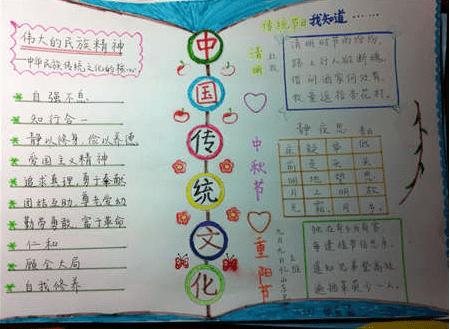 伟大的民族精神
中华民族传统文化的核心
自强不息
知行合一
静以修身,俭以养德
爱国主义精神
追求真理,勇于奉献
团结互助,尊老爱幼
勤劳勇敢,富于革命
仁和
顾全大局
自我修养
中
国
传
统
文
化
传统节日我知道……
清明
杜牧
清明时节雨纷纷,
路上行人欲断魂。
借问酒家何处有,
牧童遥指杏花村。
中秋节
静夜思
重阳节
九月九日忆山东兄弟
王维
独在异乡为异客,
每逢佳节倍思亲。
遥知兄弟登高处,
遍插茱萸少一人。